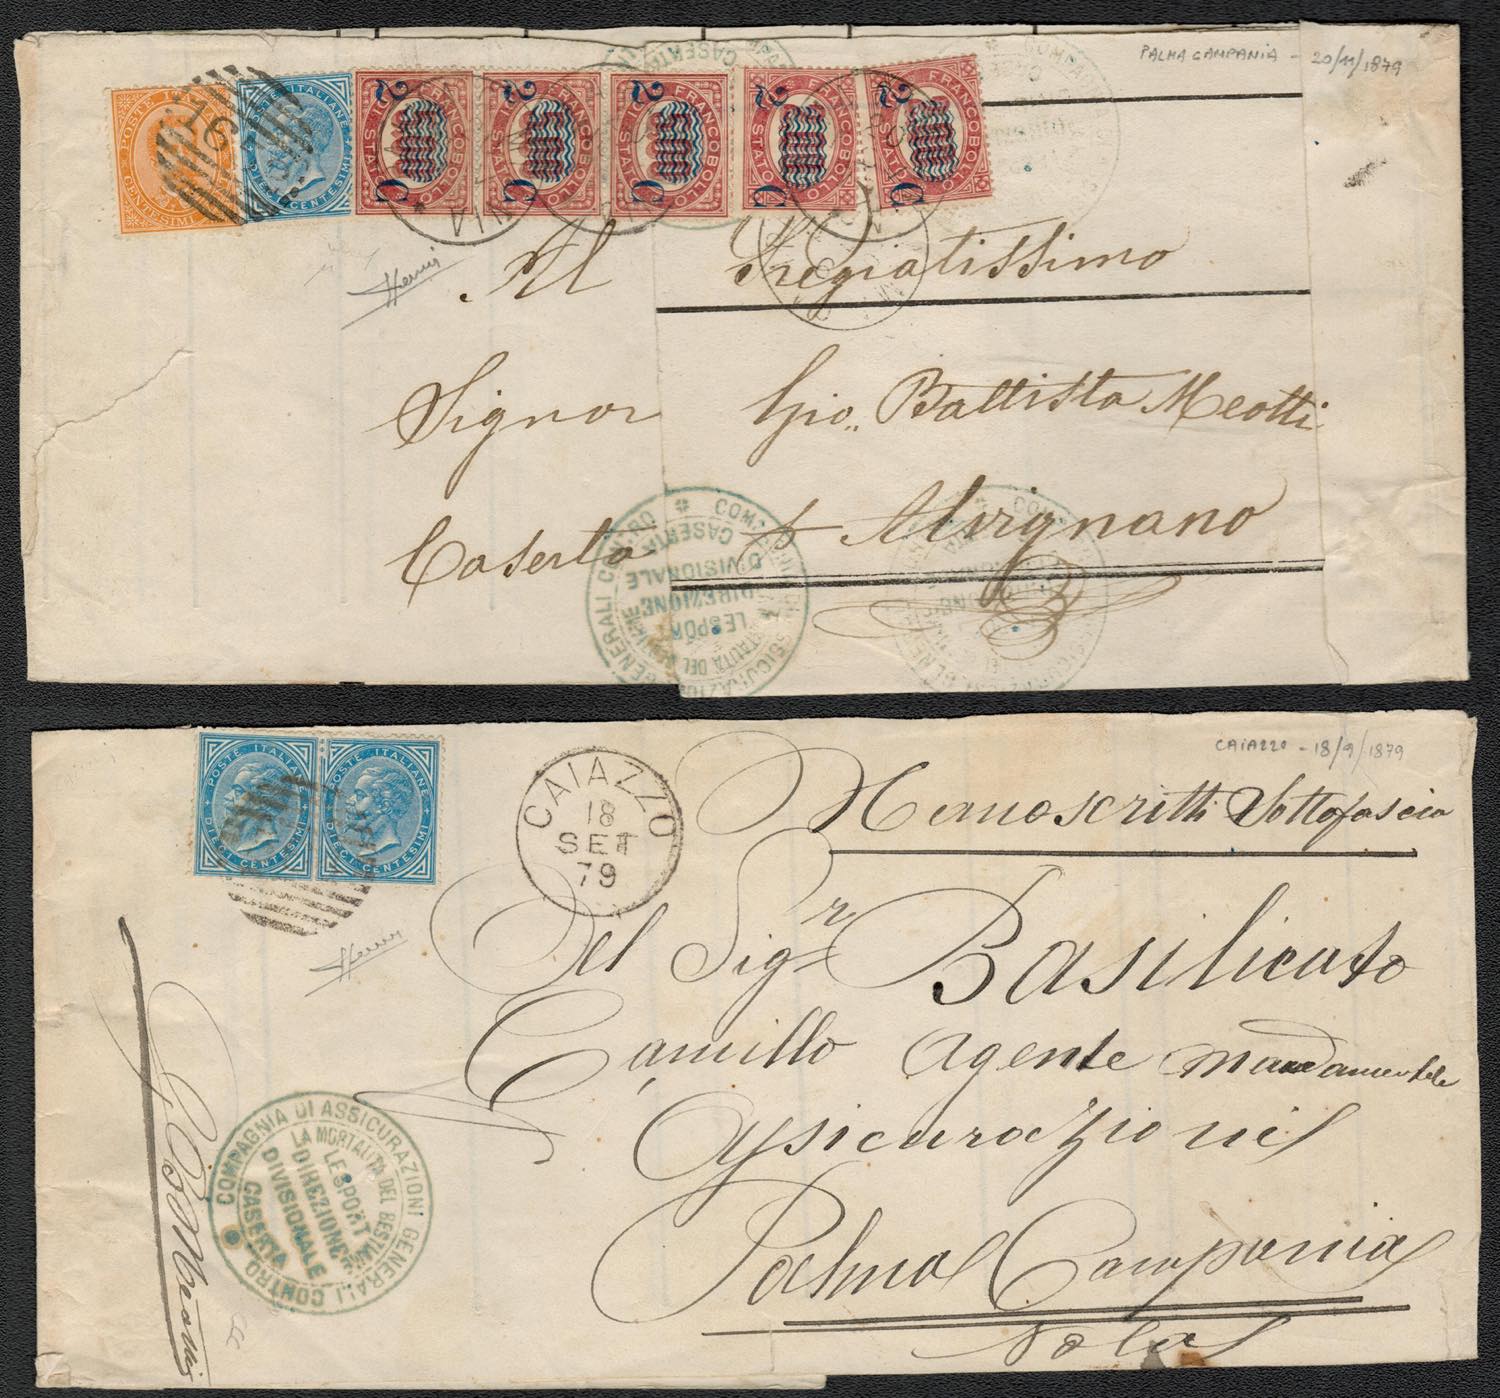 PALMA CAMPANIA - 20/11/1879
POSTE ITALIANE
CENTESIMI
16
POSTE ITALIANE
DIECI CENTESIMI
FRANCOBOLLO
STATO
2 C
FRANCOBOLLO
STATO
2 C
FRANCOBOLLO
DI STATO
2 C
FRANCOBOLLO
STATO
2 C
FRANCOBOLLO
STATO
2 C
Al Pregiatissimo
Signor Gio. Battista Meotti
Caserta p Alvignano
GENERALI CONTRO
LESPORT
DIREZIONE
DIVISIONALE
CASERTA
CAIAZZO - 18/9/1879
POSTE ITALIANE
DIECI CENTESIMI
POSTE ITALIANE
DIECI CENTESIMI
CAIAZZO
18
SET
79
Manoscritti Sottofascia
Del Sigr Basilicato
Camillo Agente Mandamentale
Assicurazioni
Palma Campania
Nola
COMPAGNIA DI ASSICURAZIONI GENERALI CONTRO
LA MORTALITA DEL BESTIAME
LESPORT
DIREZIONE
DIVISIONALE
CASERTA